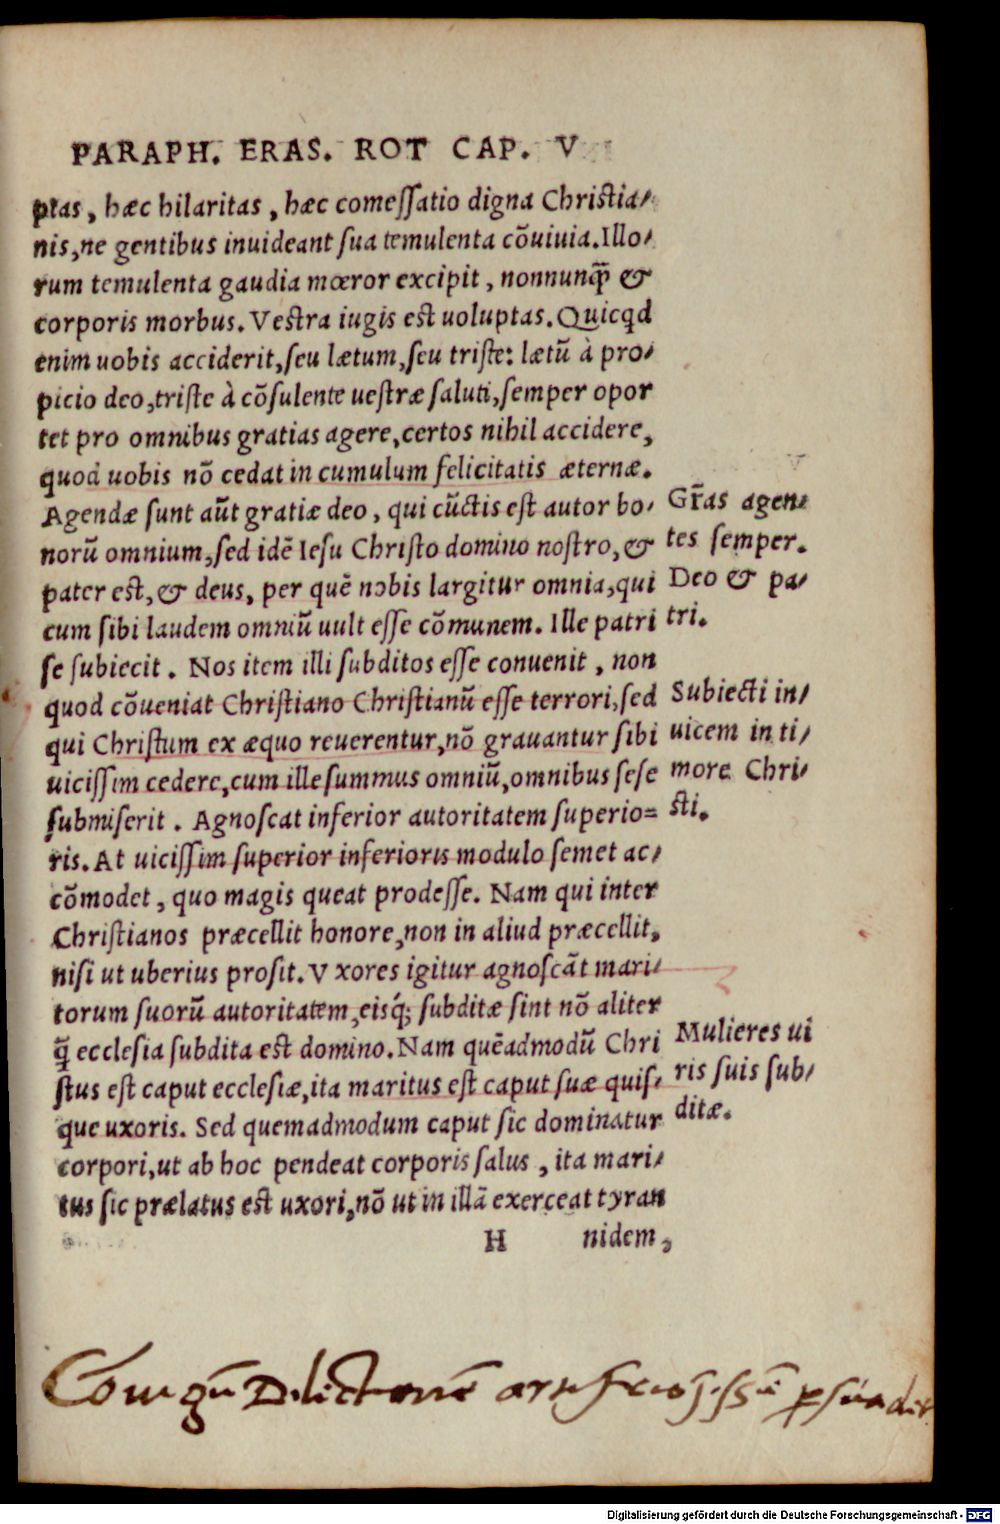 PARAPH. ERAS. ROT CAP. V
ptas, hæc hilaritas, hæc comeſſatio digna Chriſtia⸗
nis, ne gentibus inuideant ſua temulenta cõuiuia. Illo⸗
rum temulenta gaudia mœror excipit, nonnunq̃ &
corporis morbus. Veſtra iugis eſt uoluptas. Quicqd
enim uobis acciderit, ſeu lætum, ſeu triſte: lætũ à pro⸗
picio deo, triſte à cõſulente ueſtræ ſaluti, ſemper opor
tet pro omnibus gratias agere, certos nihil accidere,
quod uobis nõ cedat in cumulum felicitatis æternæ.
Agendæ ſunt aũt gratiæ deo, qui cũctis eſt autor bo⸗
norũ omnium, ſed idẽ Ieſu Chriſto domino noſtro, &
pater eſt, & deus, per quẽ nobis largitur omnia, qui
cum ſibi laudem omniũ uult eſſe cõmunem. Ille patri
ſe ſubiecit. Nos item illi ſubditos eſſe conuenit, non
quod cõueniat Chriſtiano Chriſtianũ eſſe terrori, ſed
qui Chriſtum ex æquo reuerentur, nõ grauantur ſibi
uiciſſim cedere, cum ille ſummus omniũ, omnibus ſeſe
ſubmiſerit. Agnoſcat inferior autoritatem ſuperio=
ris. At uiciſſim ſuperior inferioris modulo ſemet ac⸗
cõmodet, quo magis queat prodeſſe. Nam qui inter
Chriſtianos præcellit honore, non in aliud præcellit,
niſi ut uberius proſit. Vxores igitur agnoſcãt mari⸗
torum ſuorũ autoritatem, eisq́; ſubditæ ſint nõ aliter
q̃ eccleſia ſubdita eſt domino. Nam quẽadmodũ Chri
ſtus eſt caput eccleſiæ, ita maritus eſt caput ſuæ quiſ⸗
que uxoris. Sed quemadmodum caput ſic dominatur
corpori, ut ab hoc pendeat corporis ſalus, ita mari⸗
tus ſic prælatus eſt uxori, nõ ut in illã exerceat tyran
H nidem,
Gr̃as agen⸗
tes ſemper.
Deo & pa⸗
tri.
Subiecti in⸗
uicem in ti⸗
more Chri⸗
ſti.
Mulieres ui
ris ſuis ſub⸗
ditæ.
Digitalisierung gefördert durch die Deutsche Forschungsgemeinschaft - DFG